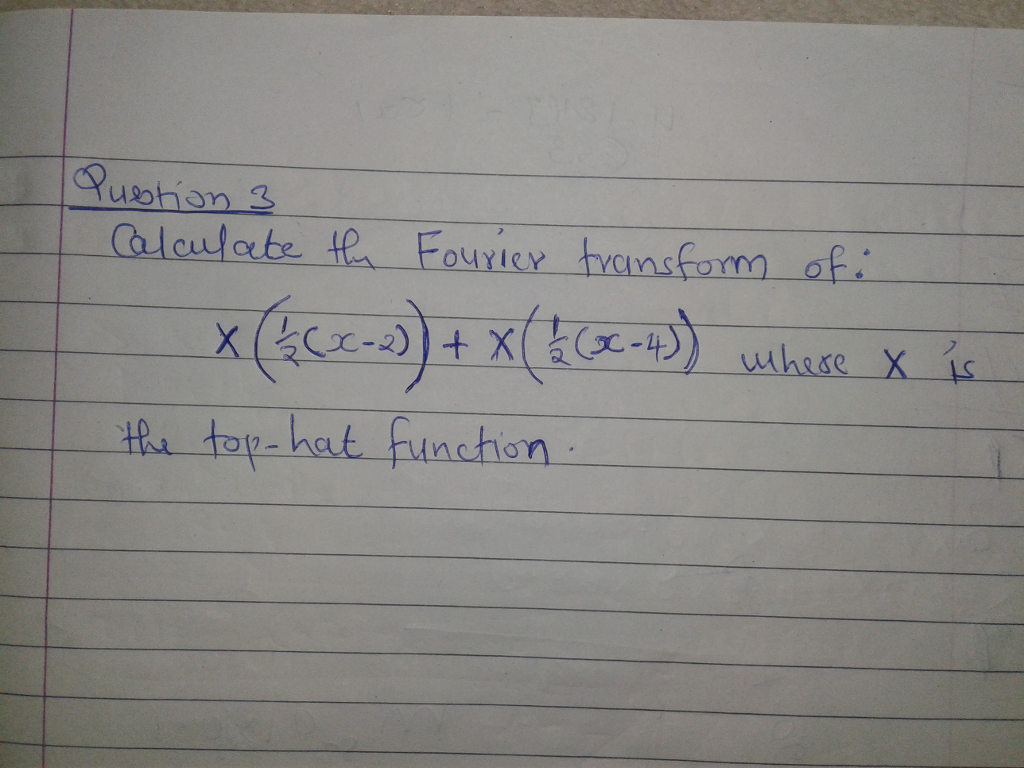 Question 3
Calculate the Fourier transform of:
X(½(x-2)) + X(½(x-4)) where X is
the top-hat function.